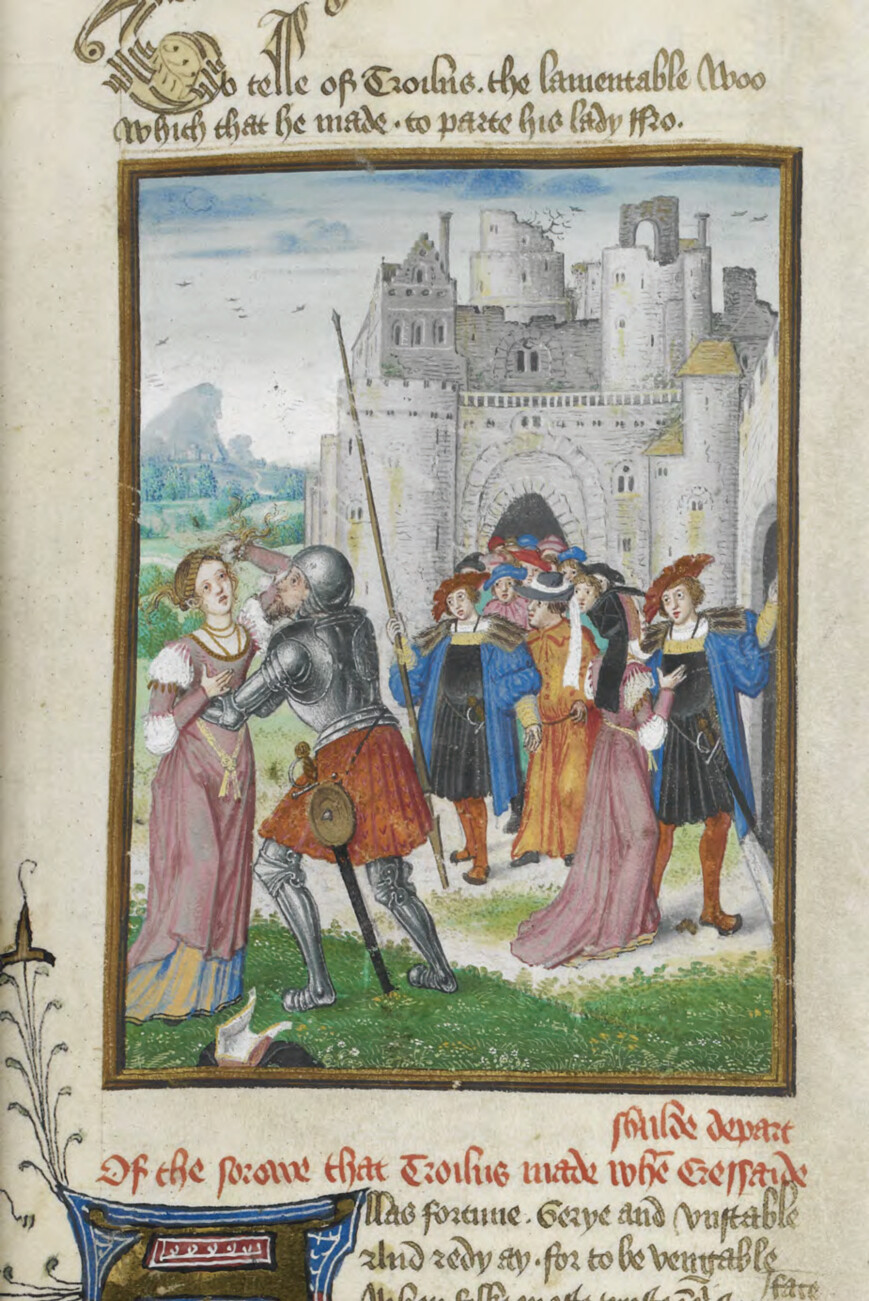 To telle of Troilus. the lamentable Woo
Which that he made. to parte his lady ffro.
shulde depart
Of the sorowe that Troilus made whē Cressaide
llas fortune. Gerye and Vnstable
And redy ay. for to be vengable